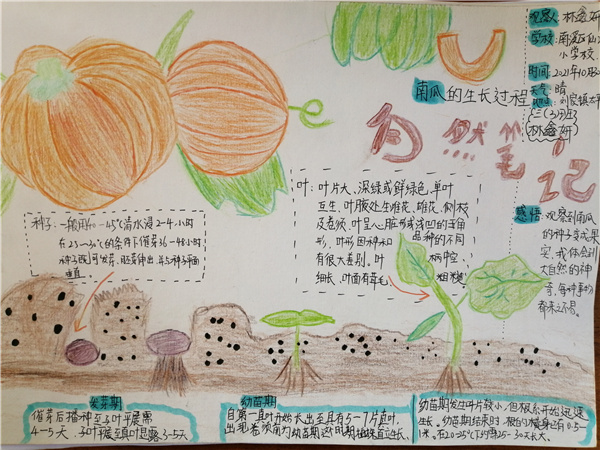 南瓜的生长过程
自然笔记
观察人:林鑫妍
学校:南溪区仙
小学校
时间:2021年10月
天气:晴
地点:刘家镇大平
三(3)班
林鑫妍
感悟:观察到南瓜
的种子变成果
实,我体会到
大自然的神
奇,每种事物
都来之不易。
叶:叶片大、深绿或鲜绿色,单叶
互生,叶腋处生雄花、雌花、侧枝
及卷须,叶呈心脏形或浅凹的五角
形,叶形因种和品种的不同
有很大差别,叶柄中空
细长,叶面有茸毛,粗糙
种子:一般用40-45℃清水浸2-4小时
在25-30℃的条件下催芽36-48小时
种子既可发芽,胚茎伸出,并与种子平面
垂直
发芽期
催芽后播种至子叶平展需
4-5天,子叶展至真叶显露3-5天
幼苗期
自第一真叶开始长出至具有5-7片真叶,
出现卷须为幼苗期这时期植株直立生长,
幼苗期发生叶片较小,但根系开始迅速
生长。幼苗期结束时,根的横身已有0.5-
1米。在20-25℃下约需25-30天长大。